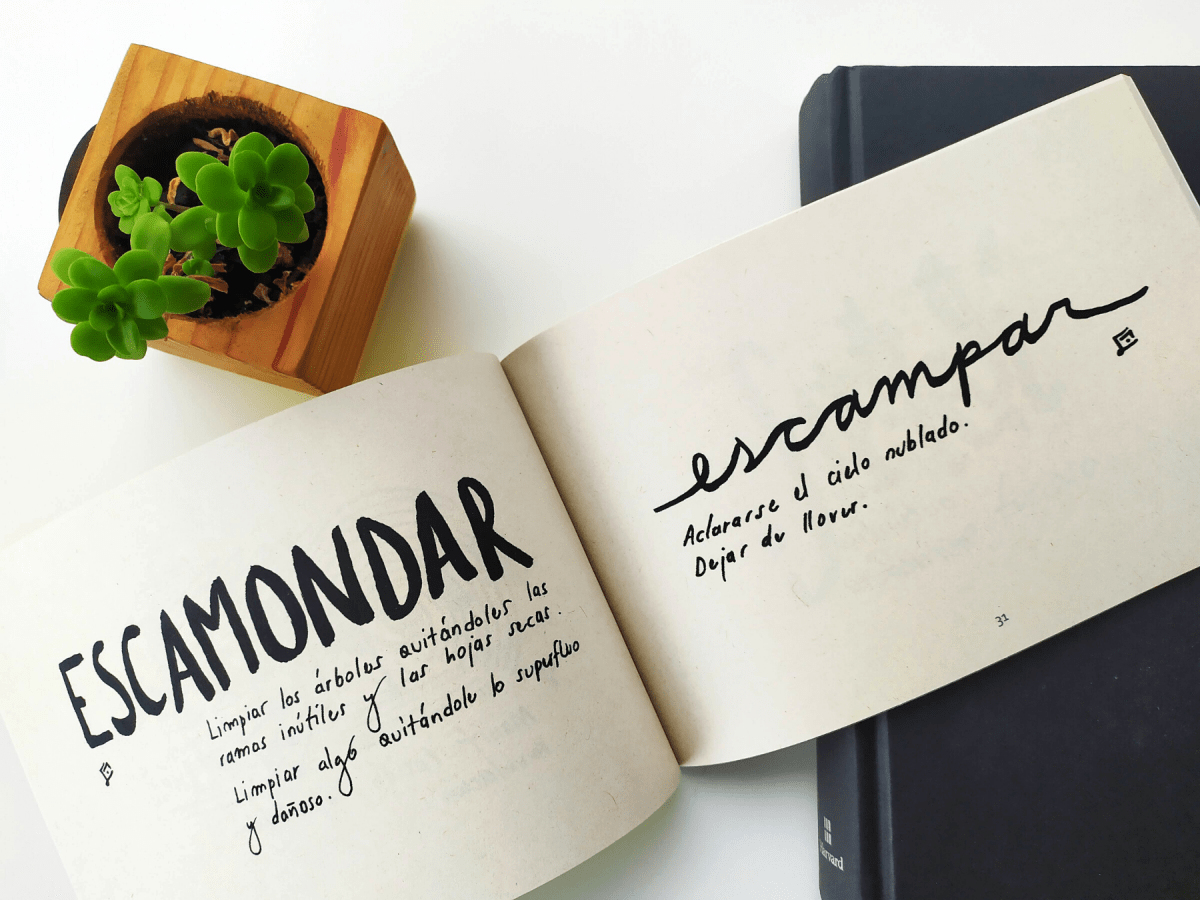 ESCAMONDAR
Limpiar los árboles quitándoles las
ramas inútiles y las hojas secas.
Limpiar algo quitándole lo superfluo
y dañoso.
escampar
Aclararse el cielo nublado.
Dejar de llover.
31
Harvard